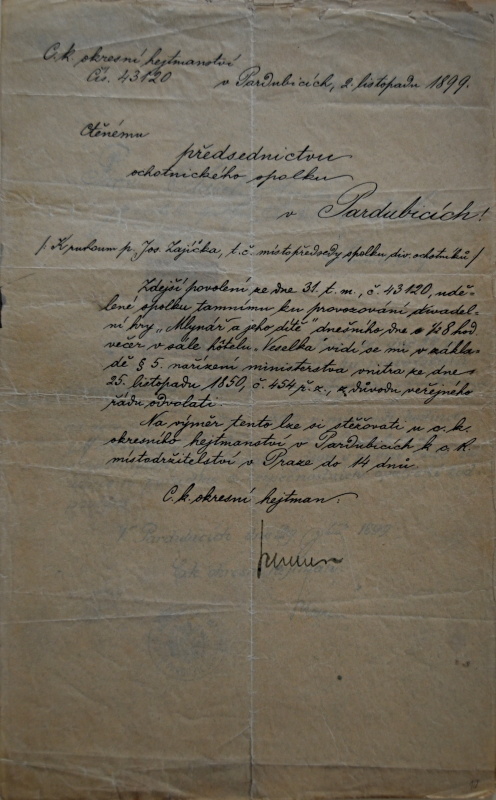 C. k. okresní hejtmanství
Čís. 43120
v Pardubicích, 2. listopadu 1899.
Ctěnému
předsednictvu
ochotnického spolku
v Pardubicích!
/: K rukoum p. Jos. Zajíčka, t. č. místopředsedy spolku div. ochotníků :/
Zdejší povolení ze dne 31. t. m., č. 43120, udě-
lené spolku tamnímu ku provozování divadel-
ní hry „Mlynář a jeho dítě“ dnešního dne o ½8 hod
večer v sále hôtelu „Veselka“ vidí se mi v zákla-
dě § 5. nařízení ministerstva vnitra ze dne
25. listopadu 1850, č. 454 ř. z., z důvodu veřejného
řádu odvolati.
Na výměr tento lze si stěžovati u c. k.
okresního hejtmanství v Pardubicích k c. k.
místodržitelství v Praze do 14 dnů.
C. k. okresní hejtman:
V Pardubicích